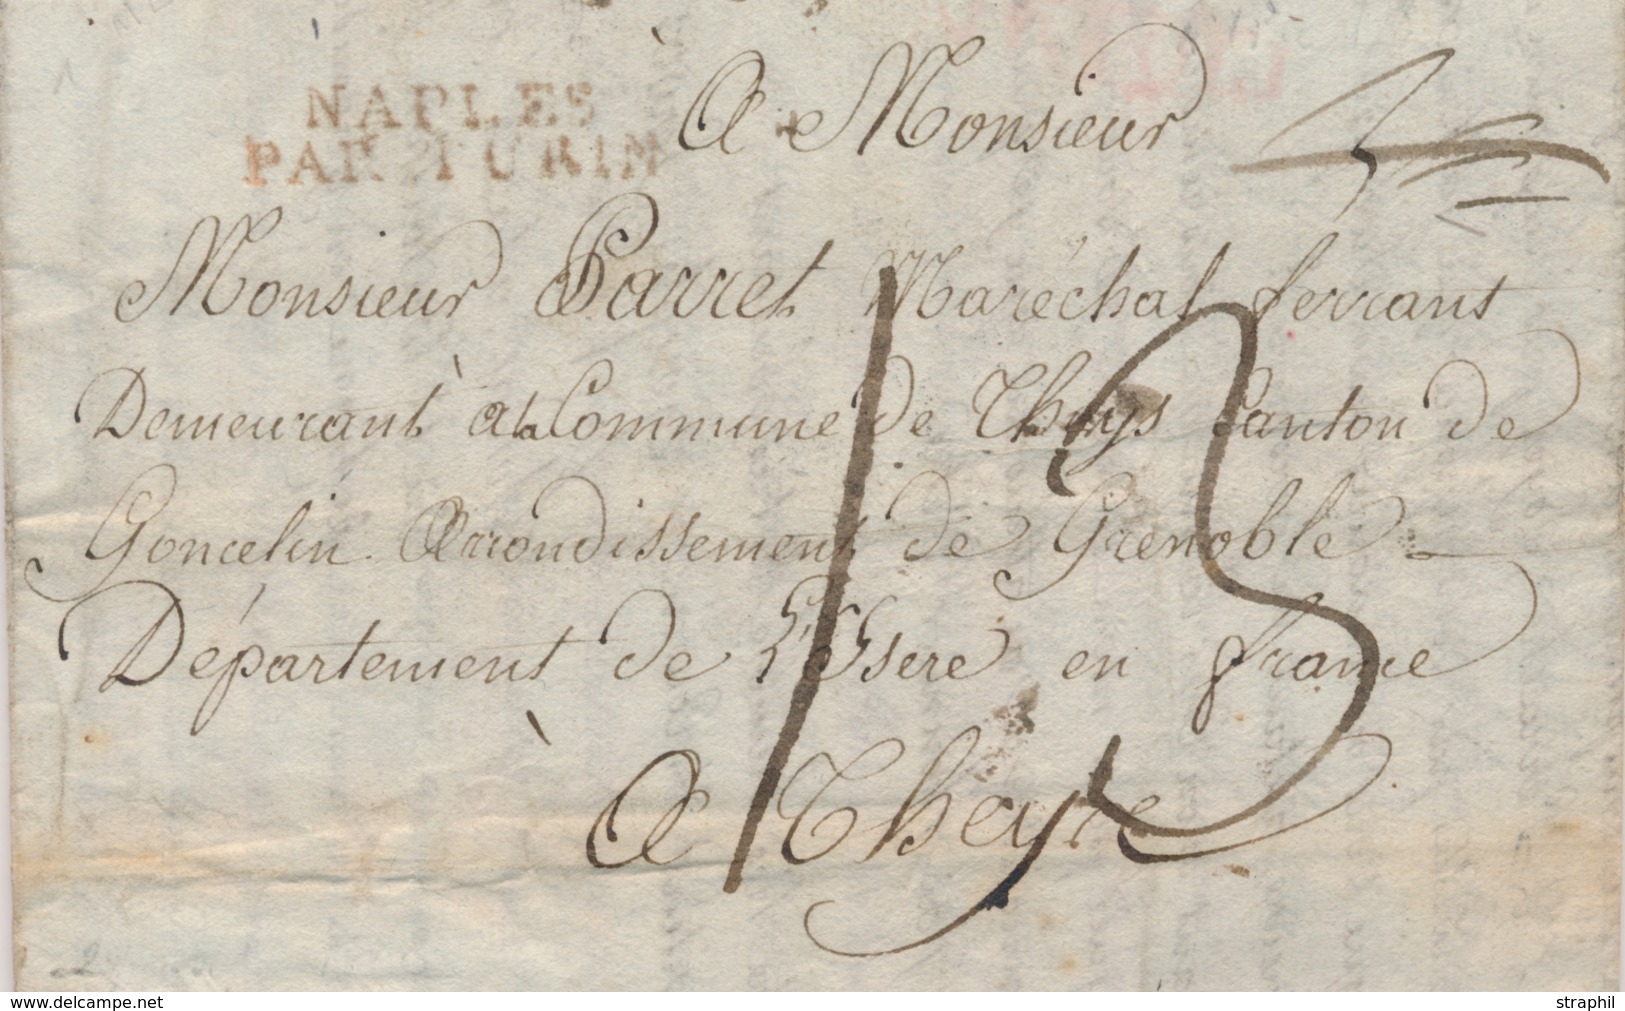 NAPLES
PAR TURIN
À Monsieur
Monsieur Parret Maréchal ferrant
Demeurant à la Commune de Theys Canton de
Goncelin Arrondissement de Grenoble
Département de L'Isere en france
13
À Theys
www.delcampe.net
straphil